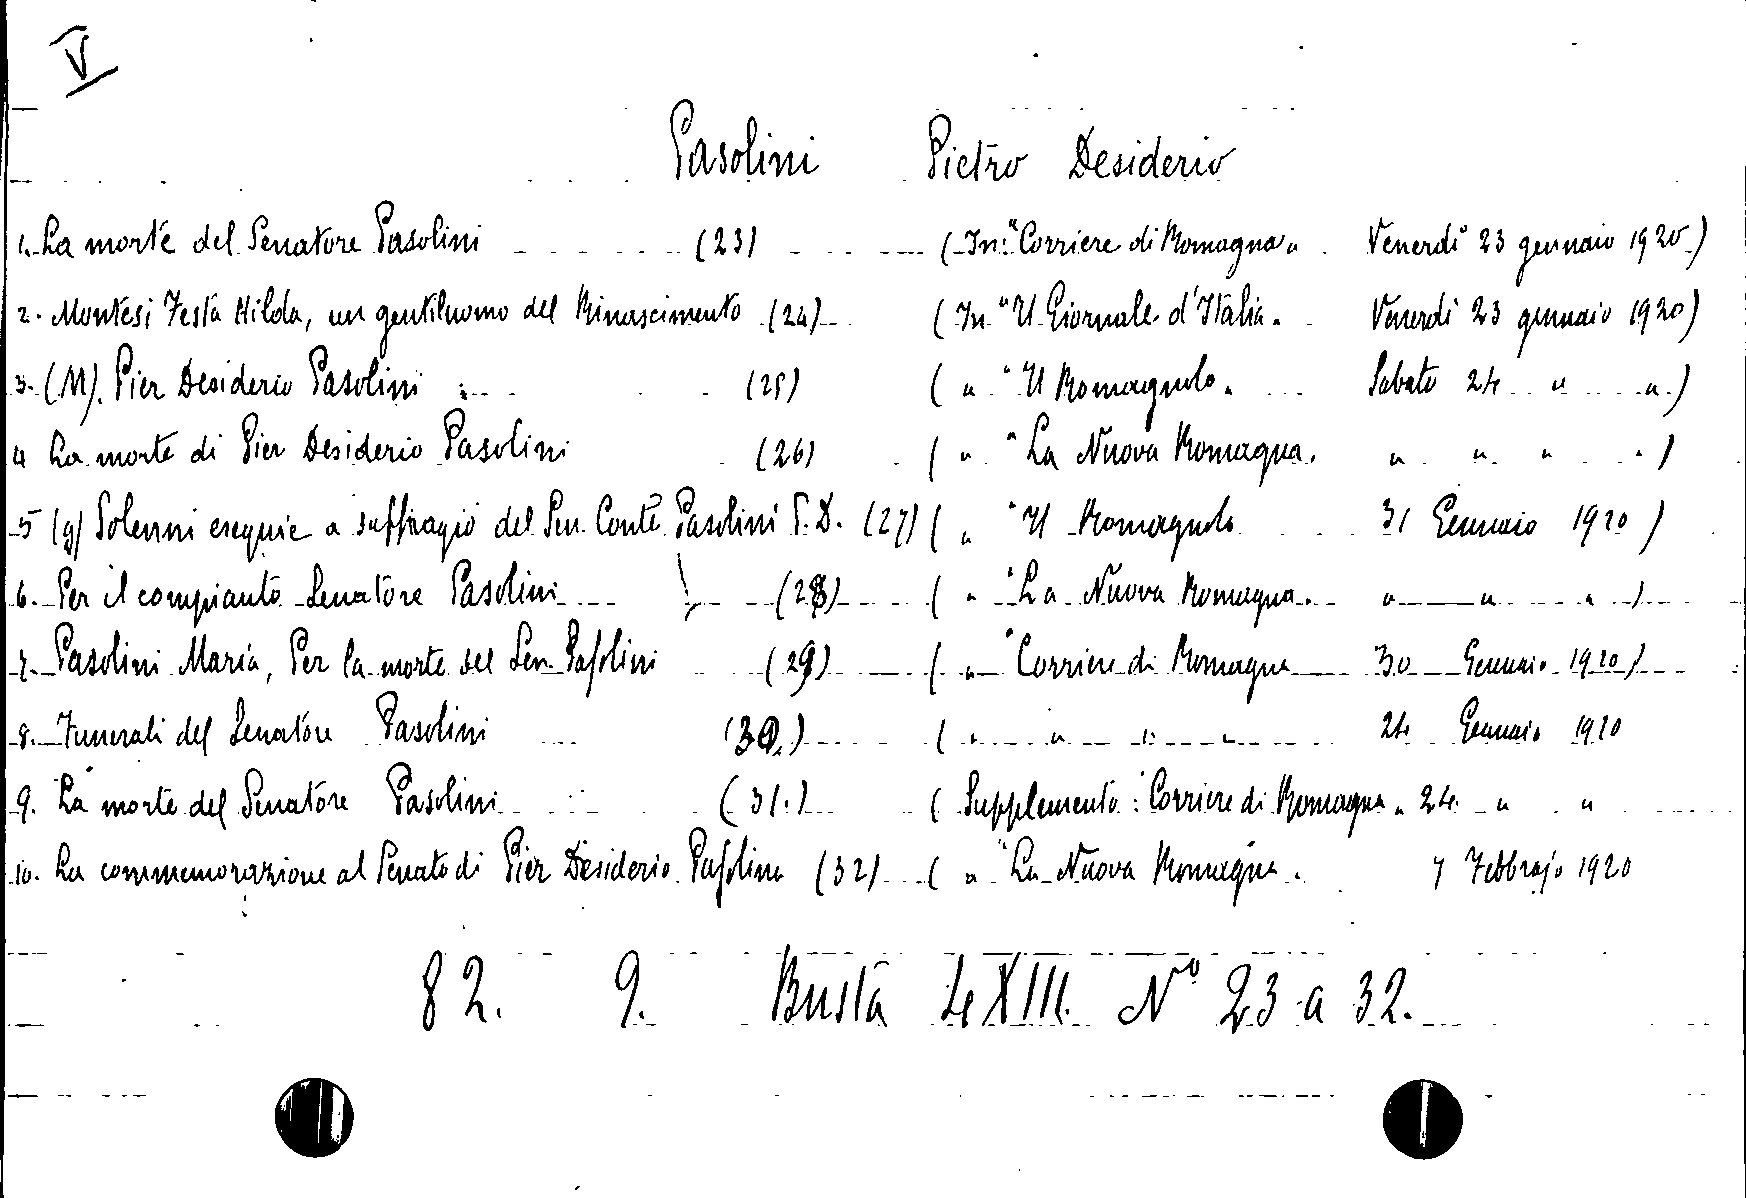 V
Pasolini Pietro Desiderio
1. La morte del Senatore Pasolini (23) (In: "Corriere di Romagna" Venerdì 23 gennaio 1920)
2. Montesi Festa Hilda, un gentiluomo del Rinascimento (24) (In "Il Giornale d'Italia" Venerdì 23 gennaio 1920)
3. (M). Pier Desiderio Pasolini (25) ( " "Il Romagnolo" Sabato 24 " ")
4 La morte di Pier Desiderio Pasolini (26) ( " "La Nuova Romagna. " " " ")
5 (g) Solenni esequie a suffragio del Sen. Conte Pasolini P. D. (27) ( " "Il Romagnolo 31 Gennaio 1920)
6. Per il compianto Senatore Pasolini (28) ( " "La Nuova Romagna. " " ")
7. Pasolini Maria, Per la morte del Sen. Pasolini (29) ( " "Corriere di Romagna 30 Gennaio 1920)
8. Funerali del Senatore Pasolini (30.) ( " " " " 24 Gennaio 1920
9. La morte del Senatore Pasolini (31.) ( Supplemento: Corriere di Romagna " 24 " "
10. La commemorazione al Senato di Pier Desiderio Pasolini (32) ( " "La Nuova Romagna. 7 Febbrajo 1920
82. 9. Busta LXIII. N° 23 a 32.